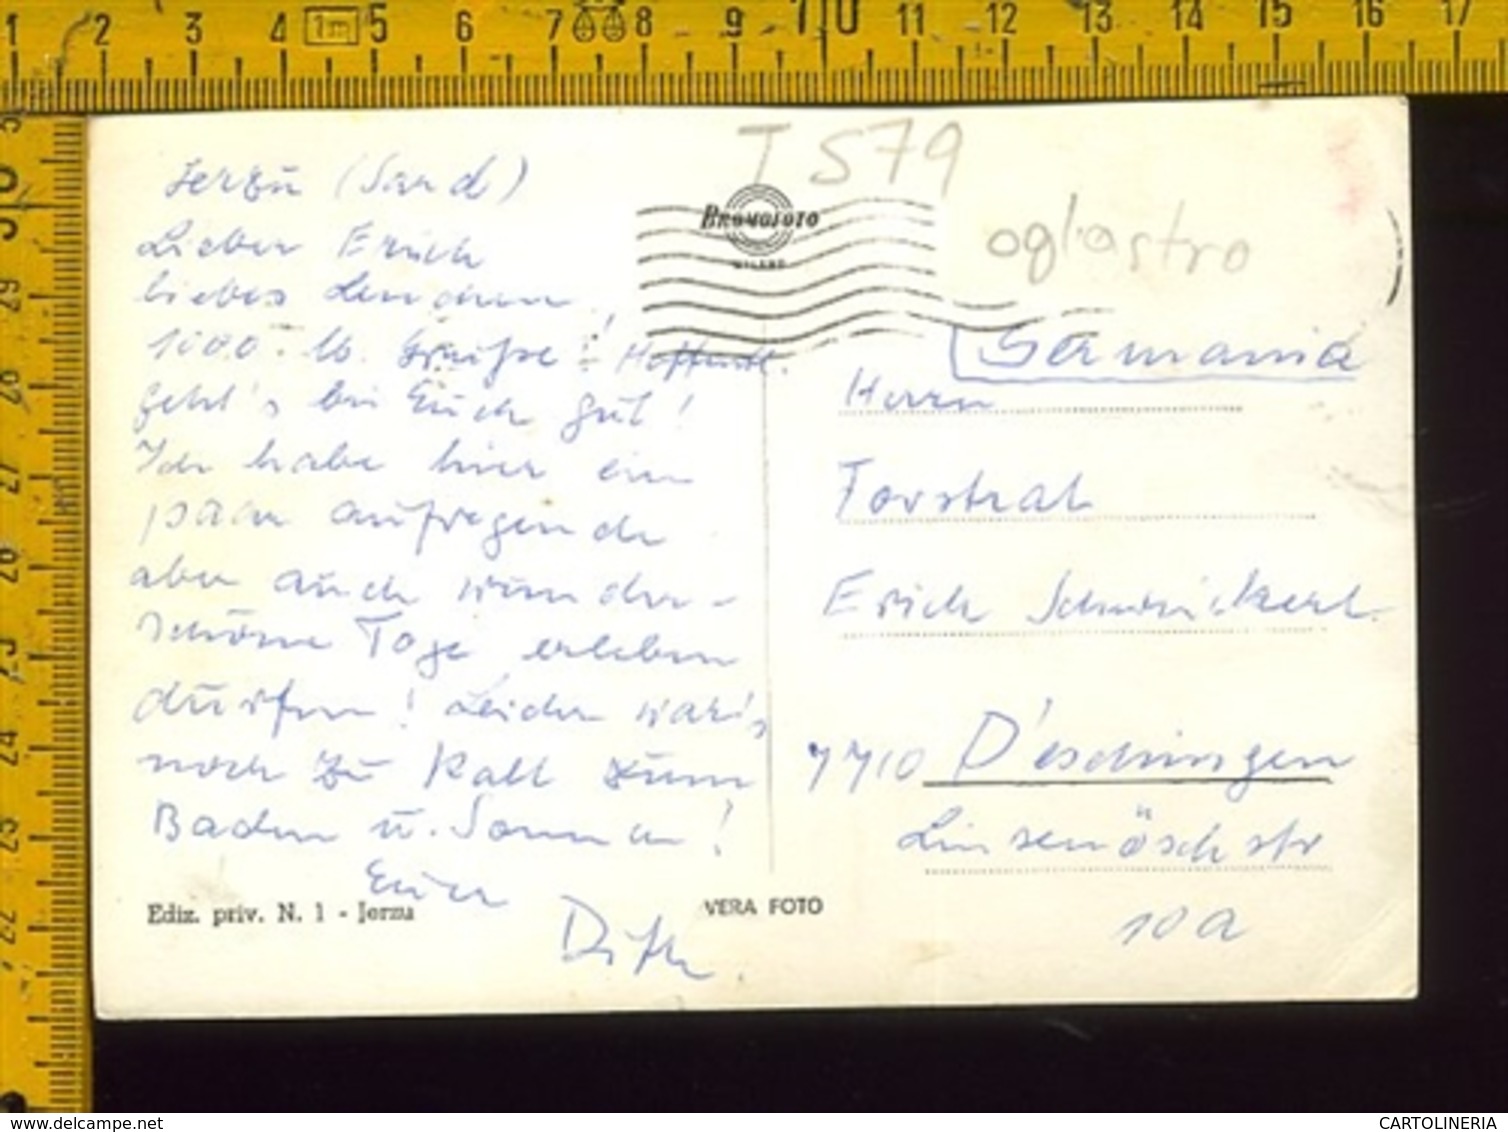 1 2 3 4 1m 5 6 7 8 9 10 11 12 13 14 15 16 17
T 579
BROMOFOTO
MILANO
ogliastro
Jerzu (Sard)
Lieber Erich
liebes Lenchen,
1000. lb. Grüsse! Hoffentl.
geht's bei Euch gut!
Ich habe hier ein
paar aufregende
aber auch wunder-
schöne Tage erleben
dürfen! Leider war's
noch zu kalt zum
Baden u. Sonnen!
Euer
Ediz. priv. N. 1 - Jerzu
VERA FOTO
Germania
Herrn
Forstrat
Erich Schweickert
7710 D'eschingen
Linsenöschstr
10a
29 28 27 26 25 24 23 22
CARTOLINERIA